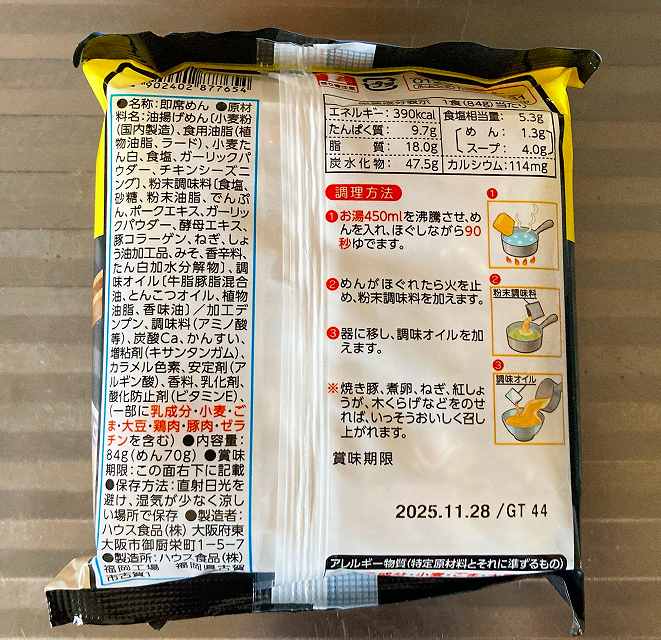 4902402877654
●名称:即席めん ●原材
料名:油揚げめん(小麦粉
(国内製造)、食用油脂(植
物油脂、ラード)、小麦た
ん白、食塩、ガーリックパ
ウダー、チキンシーズニ
ング)、粉末調味料〔食塩、
砂糖、粉末油脂、でんぷ
ん、ポークエキス、ガーリッ
クパウダー、酵母エキス、
豚コラーゲン、ねぎ、しょ
う油加工品、みそ、香辛料、
たん白加水分解物〕、調
味オイル〔牛脂豚脂混合
油、とんこつオイル、植物
油脂、香味油〕/加工デ
ンプン、調味料(アミノ酸
等)、炭酸Ca、かんすい、
増粘剤(キサンタンガム)、
カラメル色素、安定剤(ア
ルギン酸)、香料、乳化剤、
酸化防止剤(ビタミンE)、
(一部に乳成分・小麦・ご
ま・大豆・鶏肉・豚肉・ゼラ
チンを含む) ●内容量:
84g(めん70g) ●賞味
期限:この面右下に記載
●保存方法:直射日光を
避け、湿気が少なく涼し
い場所で保存 ●製造者:
ハウス食品(株) 大阪府東
大阪市御厨栄町1-5-7
●製造所:ハウス食品(株)
福岡工場 福岡県古賀
市古賀1
1食(84g)当たり
エネルギー:390kcal 食塩相当量: 5.3g
たんぱく質 9.7g めん:1.3g
脂質 18.0g スープ:4.0g
炭水化物: 47.5g カルシウム:114mg
調理方法
❶お湯450mlを沸騰させ、め
んを入れ、ほぐしながら90
秒ゆでます。
❶
❷めんがほぐれたら火を止
め、粉末調味料を加えます。
❷
粉末調味料
❸器に移し、調味オイルを加
えます。
❸
調味オイル
※焼き豚、煮卵、ねぎ、紅しょ
うが、木くらげなどをのせ
れば、いっそうおいしく召し
上がれます。
賞味期限
2025.11.28 /GT 44
アレルギー物質(特定原材料とそれに準ずるもの)